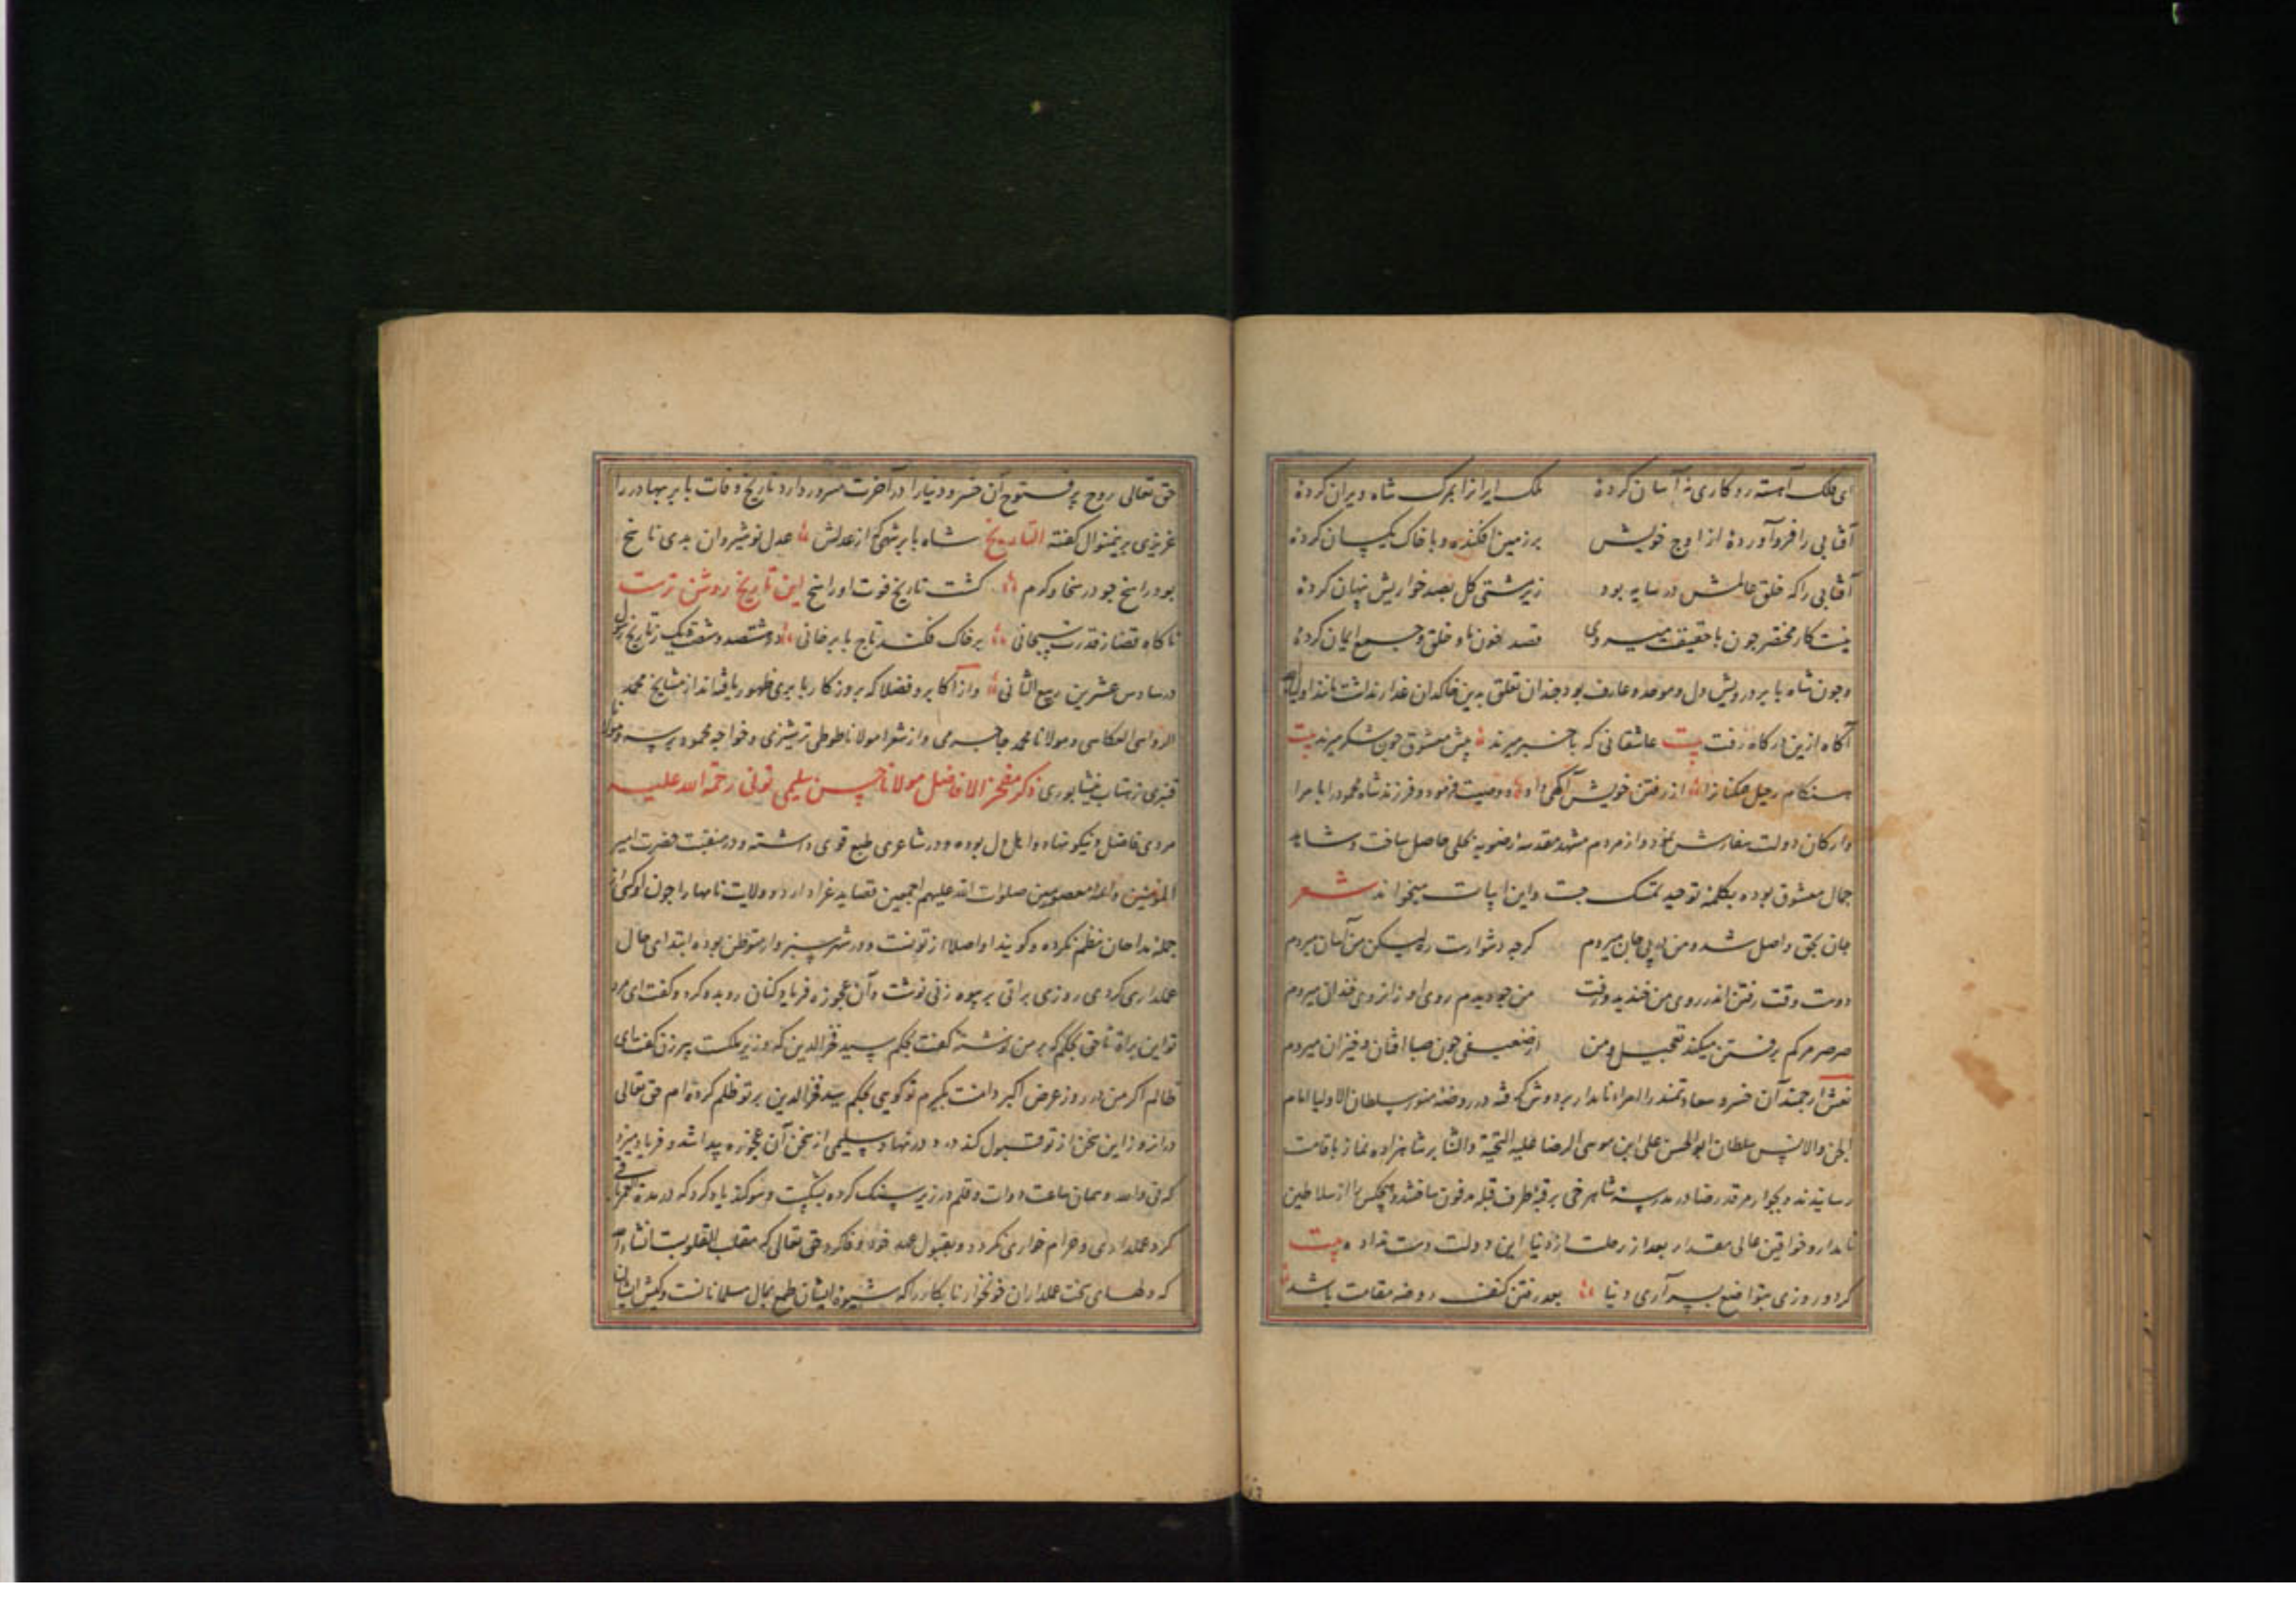 ای فلک آهسته رو کاری نه آسان کردهٔ ملک ایرانرا بمرک شاه ویران کردهٔ
آفتابی را فرو آوردهٔ از اوج خویش بر زمین افکندهٔ و با خاک یکسان کردهٔ
آفتابی را که خلق عالمش در سایه بود زیر مشتی کل بصد خواریش پنهان کردهٔ
نیست کار مختصر چون با حقیقت میروی قصد خون و خلق و ایمان کردهٔ
و چون شاه بابر درویش دل و موحد و عارف بود چندان تعلق بدین خاکدان غدار نداشت مانند اولیاء
آکاه ازین درکاه رفت بیت عاشقانی که باخبر میرند پیش معشوق چون شکر میرند بیت
هنکام رحیل همکنانرا از رفتن خویش آکهی داد و وصیت فرمود و فرزند شاه محمود را بامرا
و ارکان دولت سفارش نمود و از مردم مشهد مقدسهٔ رضویه بحلی حاصل ساخت و مشاهد
جمال معشوق بوده بکلمهٔ توحید تمسک جست و این ابیات میخواند شعر
جان بحق واصل شد و من در پی جان میروم کرچه دشوارست ره لیکن من آسان میروم
دوست وقت رفتن اندر روی من خندید و رفت من چو دیدم روی او زانروی خندان میروم
صرصر مرکم برفتن میکند تعجیل و من از ضعیفی چون صبا افتان و خیزان میروم
نعش ارجمند آن خسرو سعادتمند را امراء نامدار بر دوش کرفته در روضهٔ منور سلطان الاولیا امام
الجن والانس سلطان ابوالحسن علی ابن موسی الرضا علیه التحیة والثنا بر شاهزاده نماز باقامت
رسانیدند و بجوار مرقد رضا در مدرسهٔ شاهرخی بر قبهٔ طرف قبله مدفون ساختند و هیچکس را از سلاطین
نامدار و خواقین عالی مقدار بعد از رحلت از دنیا این دولت دست نداد بیت
کر دو روزی بتواضع بسر آری دنیا بعد رفتن کنف روضه مقامت باشد
حق تعالی روح پر فتوح آن خسرو دنیا را در آخرت مسرور دارد تاریخ وفات بابر بهادر را
عزیزی برینمنوال کفته التاریخ شاه بابر شهی که از عدلش عدل نوشیروان بدی ناسخ
بود راسخ چو در سخا و کرم کشت تاریخ فوت او راسخ این تاریخ روشن ترست
ناکاه قضا ز قدرت سبحانی بر خاک فکند تاج بابر خانی در هشتصد و شصت و یک ز تاریخ رسول
در سادس عشرین ربیع الثانی و از اکابر و فضلا که بروزکار بابری ظهور یافته‌اند از مشایخ محمد
الرواسی العکاسی و مولانا محمد جاجرمی و از شعرا مولانا طوطی ترشیزی و خواجه محمود برسه و مولانا
قنبری نیشابوری ذکر مفخر الافاضل مولانا حسن سلیمی تونی رحمة الله علیه
مردی فاضل و نیکو نهاد و اهل دل بوده و در شاعری طبع قوی داشته و در منقبت حضرت امیر
المؤمنین و ائمهٔ معصومین صلوات الله علیهم اجمعین قصاید غرا دارد و ولایت نامها را چون او کسی از
جملهٔ مداحان نظم نکرده و کویند او اصلا از تونست و در شهر سبزوار متوطن بوده ابتدای حال
عملداری کردی روزی براتی بر بیوه زنی نوشت و آن عجوزه فریاد کنان رو بدو کرد و کفت ای مرد
تو این براة ناحق بحکم که بر من نوشته کفت بحکم سید فخر الدین که وزیر ملکست پیرزن کفت ای
ظالم اکر من در روز عرض اکبر دامنت بکیرم تو کویی بحکم سید فخر الدین بر تو ظلم کرده‌ام حق تعالی
در انروز این سخن از تو قبول کند درد در نهاد سلیمی از سخن آن عجوزه پیدا شد و فریاد میزد
که نی والله و همان ساعت دوات و قلم در زیر سنک کرده بشکست و سوکند یاد کرد که در مدة العمر باقی
کرد عملداری و حرام خواری نکردد و بقبول عهد خود وفا کرد حق تعالی که مقلب القلوبست انشاء الله
که دلهای سخت عملداران خونخوار نابکار را که شیوهٔ ایشان طمع بمال مسلمانانست و کیش ایشان